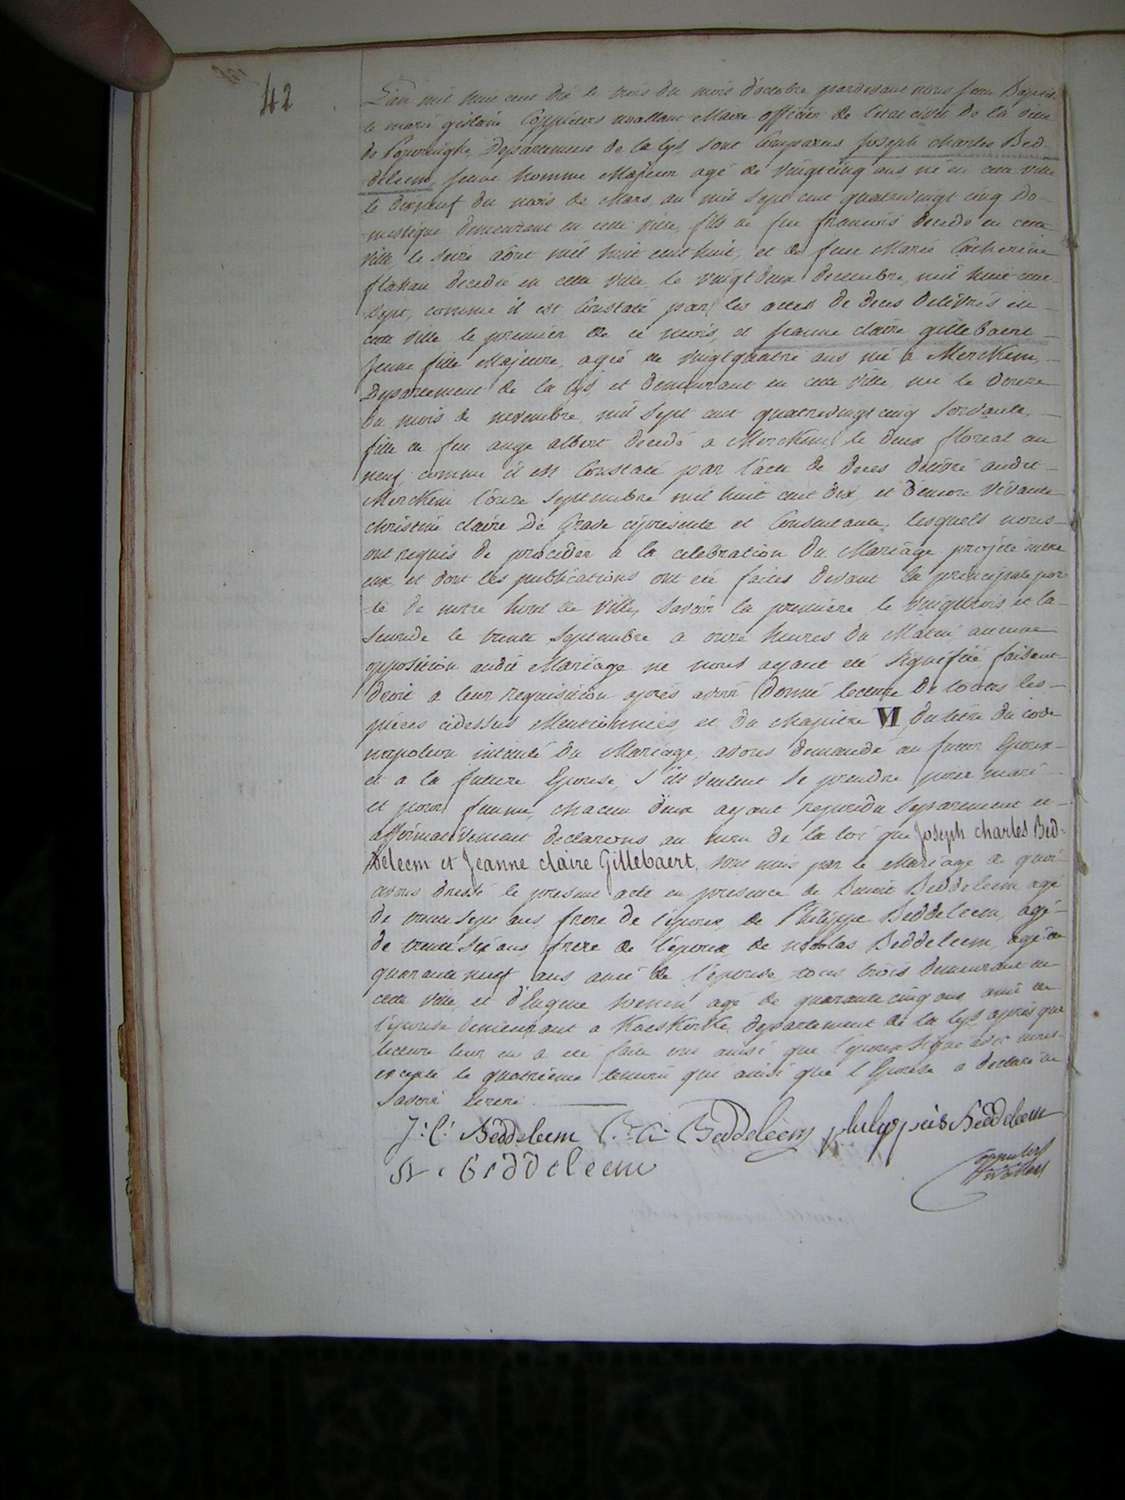 42
L'an mil huit cent dix le trois du mois d'octobre pardevant nous Jean Baptis-
te marie gislain Coppieters wallant Maire officier de l'etat civil de la ville
de Poperinghe, Departement de la lys, sont Comparus Joseph charles Bed-
deleem jeune homme Majeur agé de vingt cinq ans né en cette ville
le dixneuf du mois de Mars an mil sept cent quatrevingt cinq Do-
mestique demeurant en cette ville, fils de feu francois decedé en cette
ville le seize aôut mil huit cent huit, et de feue Marie Catherine
flahau decedée en cette ville, le vingt deux decembre, mil huit cent
sept, comme il est Constaté par les actes de deces delivrés en
cette ville le premier de ce mois, et Jeanne claire gillebaert
Jeune fille Majeure, agée de vingtquatre ans née a Merckem,
Departement de la lys, et demeurant en cette ville, née le douze
du mois de novembre, mil sept cent quatrevingt cinq servante,
fille de feu ange albert decedé a Merckem le deux floreal an
neuf comme il est Constaté par l'acte de deces delivré audit
Merckem l'onze septembre mil huit cent dix, et d'encore vivante
christine claire De Grave cipresente et Consentante, lesquels nous
ont requis de procéder a la celebration du Mariage projeté entre
eux et dont les publications ont été faites devant la principale por-
te de notre hotel de ville, savoir la premiere le vingttrois et la
seconde le trente septembre a onze heures du Matin, aucune
opposition audit Mariage ne nous ayant été signifiée faisant
droit a leur requisition après avoir donné lecture de toutes les
pièces cidessus Mentionnées, et du chapitre VI du titre du code
napoleon intitulé du Mariage, avons demandé au futur Epoux
et a la future Epouse, s'ils veulent se prendre pour mari
et pour femme, chacun d'eux ayant repondu separement et
affirmativement declarons au nom de la loi que Joseph charles Bed-
deleem et Jeanne claire Gillebaert, sont unis par le Mariage de quoi
avons dressé le present acte en presence de Benoit Beddeleem agé
de trente sept ans frere de l'époux, de Philippe Beddeleem, agé
de trente six ans, frere de l'époux, de nicolas Beddeleem, agé de
quarante neuf ans amé de l'épouse, tous trois demeurant en
cette ville, et d'Eugene agé de quarante cinq ans amé de
l'épouse demeurant a Kaeskerke, departement de la lys, après que
lecture leur en a eté faite ont ainsi que l'epoux signé avec nous
excepté le quatrieme temoin qui ainsi que l'Epouse a declaré ne
savoir ecrire.
J: C: Beddeleem Beddeleem philippus Beddeleem
N. Beddeleem